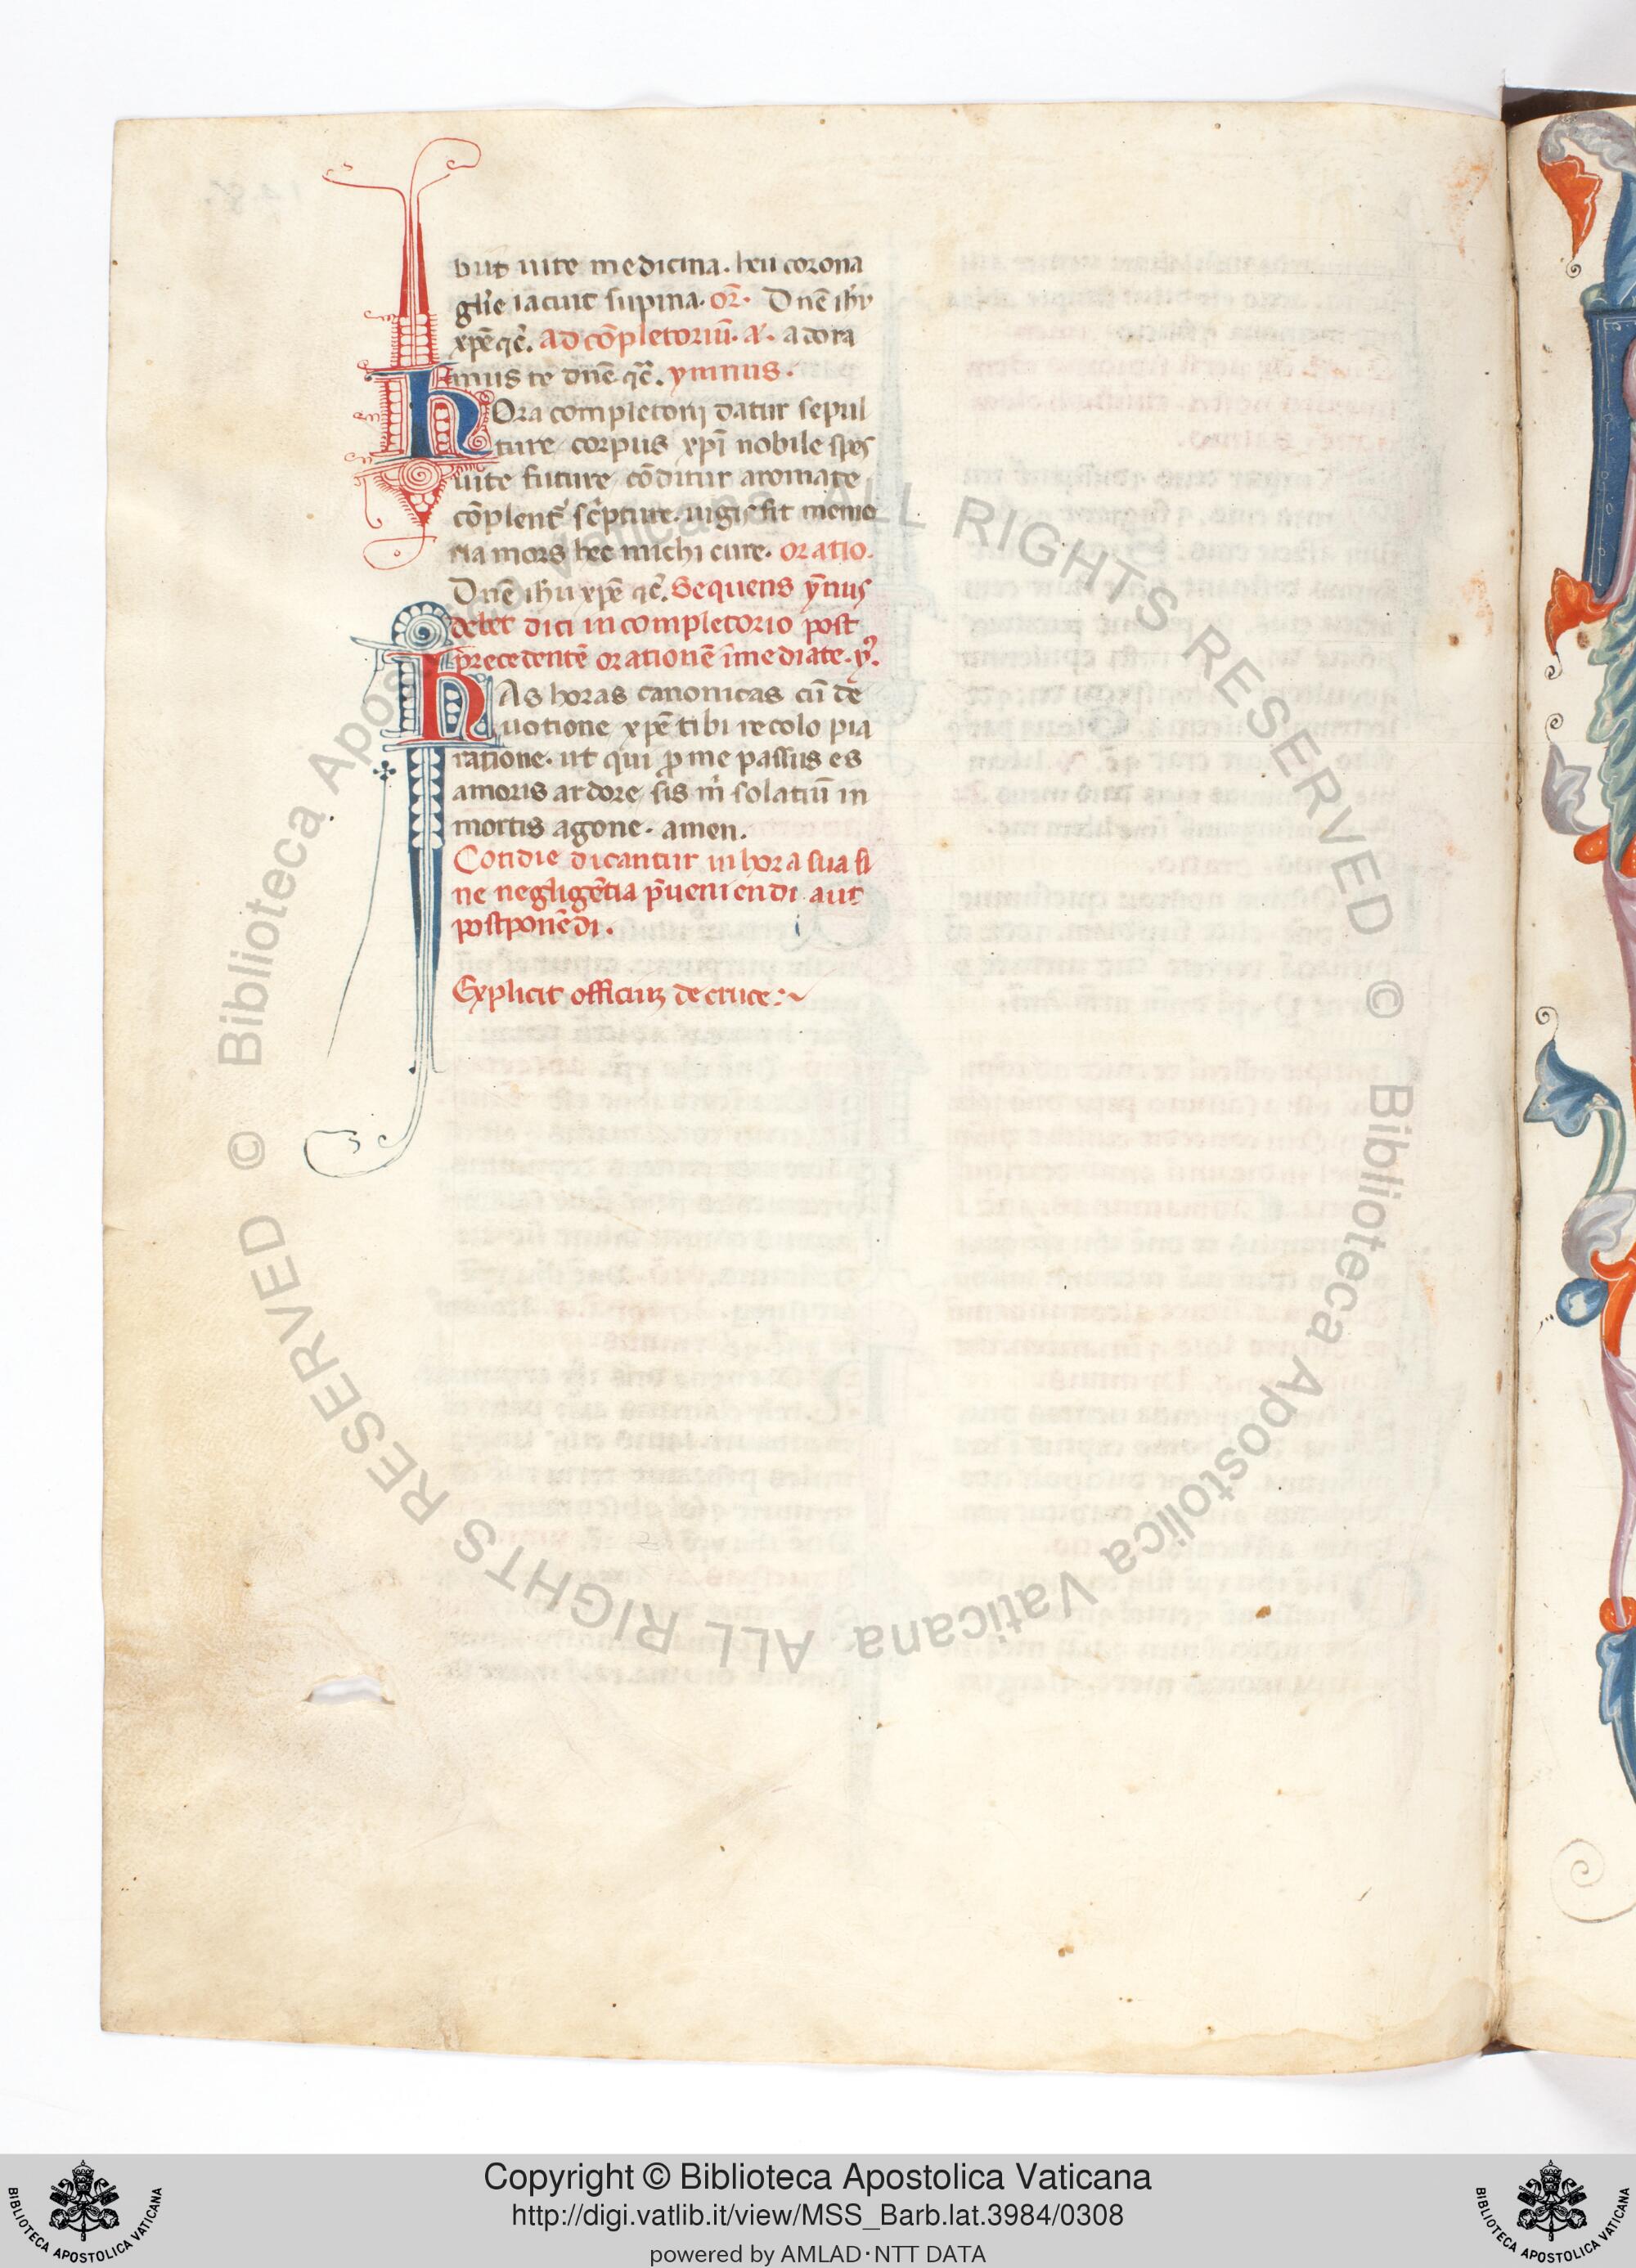 buit uite medicina. heu corona
gl'ie iacuit supina. or̄. Dn̄e ih̄u
xp̄e qc̄. ad cōpletoriū. a. adora
mus te dn̄e qc̄. ymnus.
hOra completorij datur sepul
ture corpus xp̄i nobile spes
uite future cōditur aromate
cōplent᷑ sc̄pture. iugis sit memo
ria mors hec michi cure. oratio.
Dn̄e ih̄u xp̄e qc̄. Sequens ȳnus
debet dici in completorio post
precedentē orationē īmediate. y᷑.
hAs horas canonicas cū de
uotione xp̄e tibi recolo pia
ratione. ut qui ꝓ me passus es
amoris ardore sis m̄ solatiū in
mortis agone. amen.
Cotidie dicantur in hora sua si
ne negligētia p̄ueniendi aut
postponēdi.
Explicit officium de cruce:~
© Biblioteca Apostolica Vaticana ALL RIGHTS RESERVED
© Biblioteca Apostolica Vaticana ALL RIGHTS RESERVED
Copyright © Biblioteca Apostolica Vaticana
http://digi.vatlib.it/view/MSS_Barb.lat.3984/0308
powered by AMLAD·NTT DATA
BIBLIOTECA APOSTOLICA VATICANA
BIBLIOTECA APOSTOLICA VATICANA